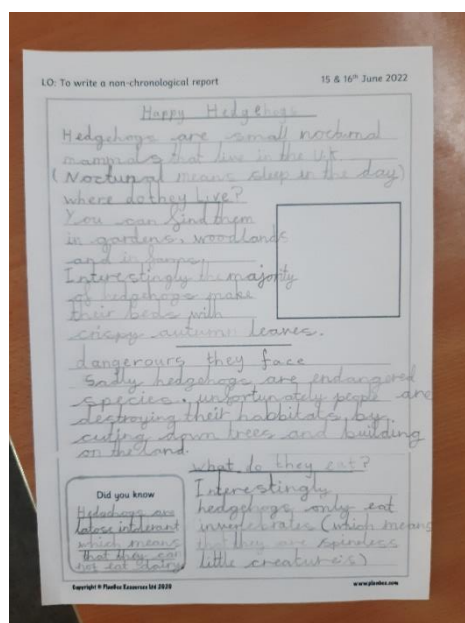 LO: To write a non-chronological report
15 & 16th June 2022
Happy Hedgehogs
Hedgehogs are small nocturnal
mammals that live in the U.K
(Nocturnal means sleep in the day)
where do they live?
You can find them
in gardens, woodlands
and in farms.
Interestingly the majority
of hedgehogs make
their beds with
crispy autumn leaves.
dangerours they face
Sadly hedgehogs are endangered
species. unfortunately people are
destroying their habbitats by
cuting down trees and building
on the land.
what do they eat?
Interestingly
hedgehogs only eat
invertebrates (which means
that they are spineless
little creatures)
Did you know
Hedgehogs are
latose intolerant
which means
that they can
not eat dairy
Copyright © PlanBee Resources Ltd 2020
www.planbee.com